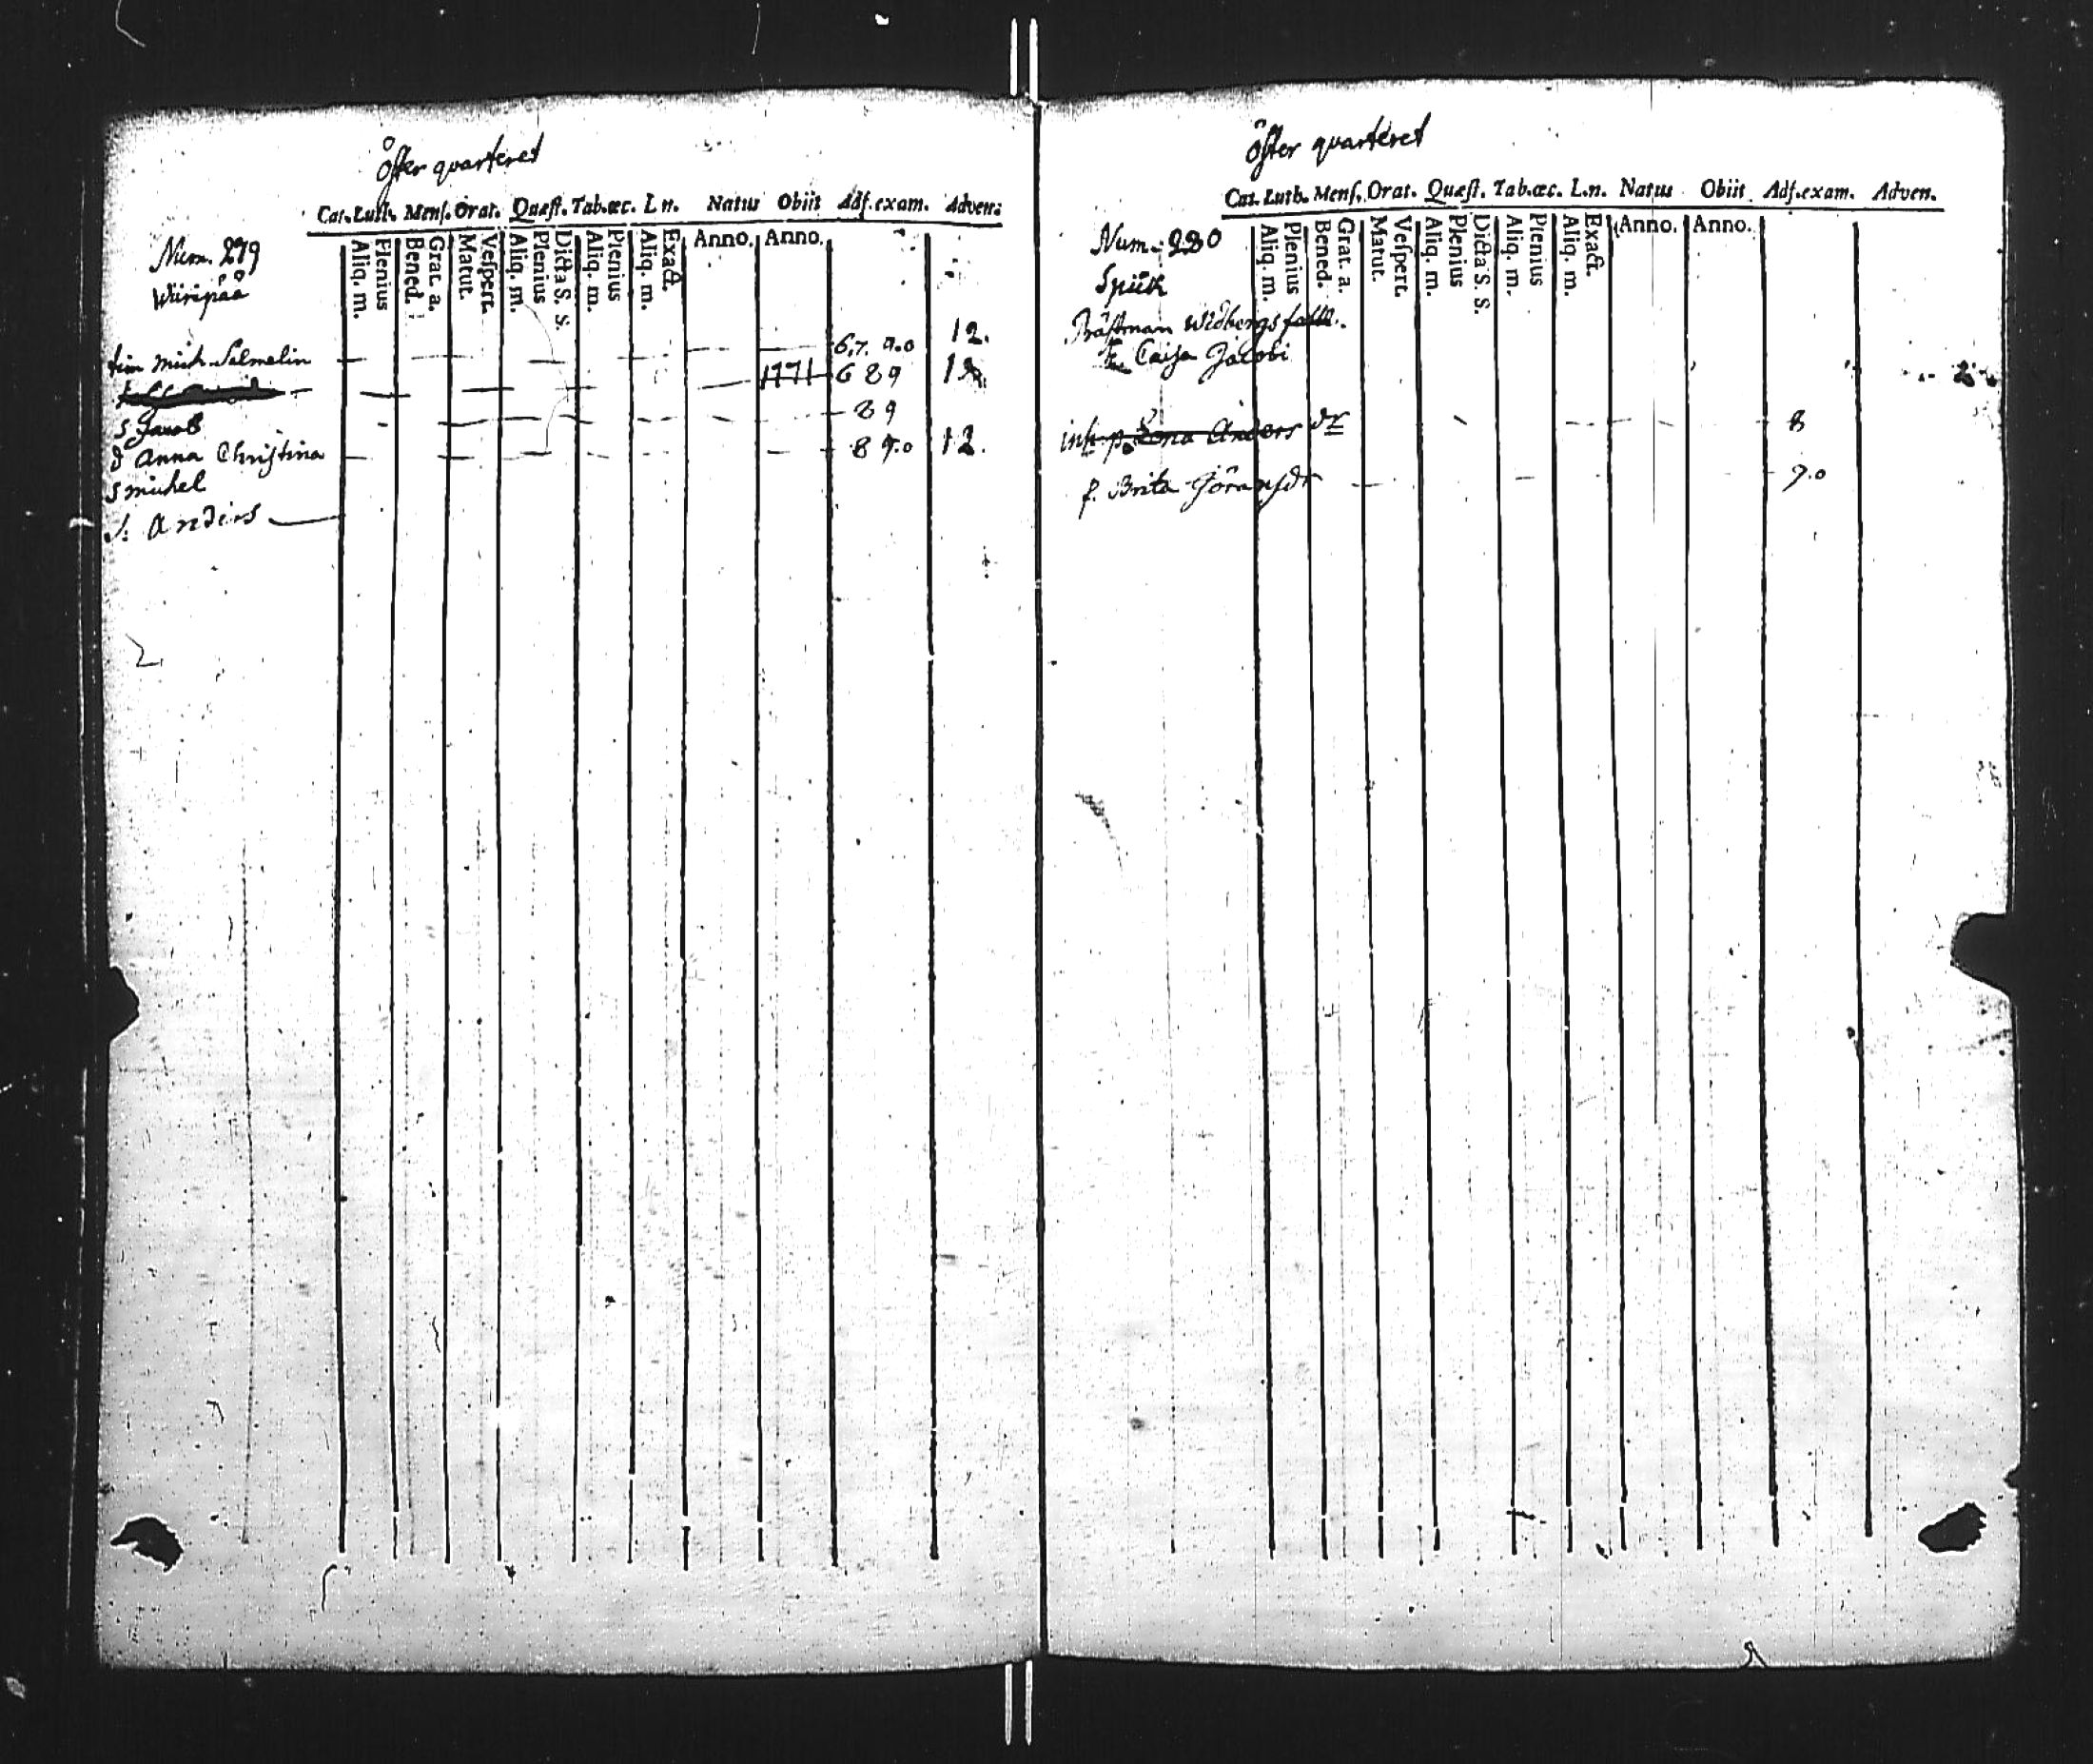 öster quarteret
Cat. Luth. Menſ. Orat. Quæſt. Tab.œc. L n. Natus Obiit Adſ. exam. Adven:
Aliq. m. Plenius Bened. Grat. a. Matut. Veſpert. Aliq. m. Plenius Dicta S. S. Aliq. m. Plenius Aliq. m. Exact. Anno. Anno.
Num. 279
Wiiripää
mich. Salmelin 6.7. 9.0 12.
1771 6 8 9
s Jacob 8 9
d Anna Christina 8 9.0 12.
s michel
s. Anders
öster quarteret
Cat. Luth. Menſ. Orat. Quæſt. Tab.œc. L.n. Natus Obiit Adſ.exam. Adven.
Aliq. m. Plenius Bened. Grat. a. Matut. Veſpert. Aliq. m. Plenius Dicta S. S. Aliq. m. Plenius Aliq. m. Exact. Anno. Anno.
Num. 280
Spiik
Widbergs
Caisa Jacobi
Anders dr 8
f. Brita Göransdr 9.0